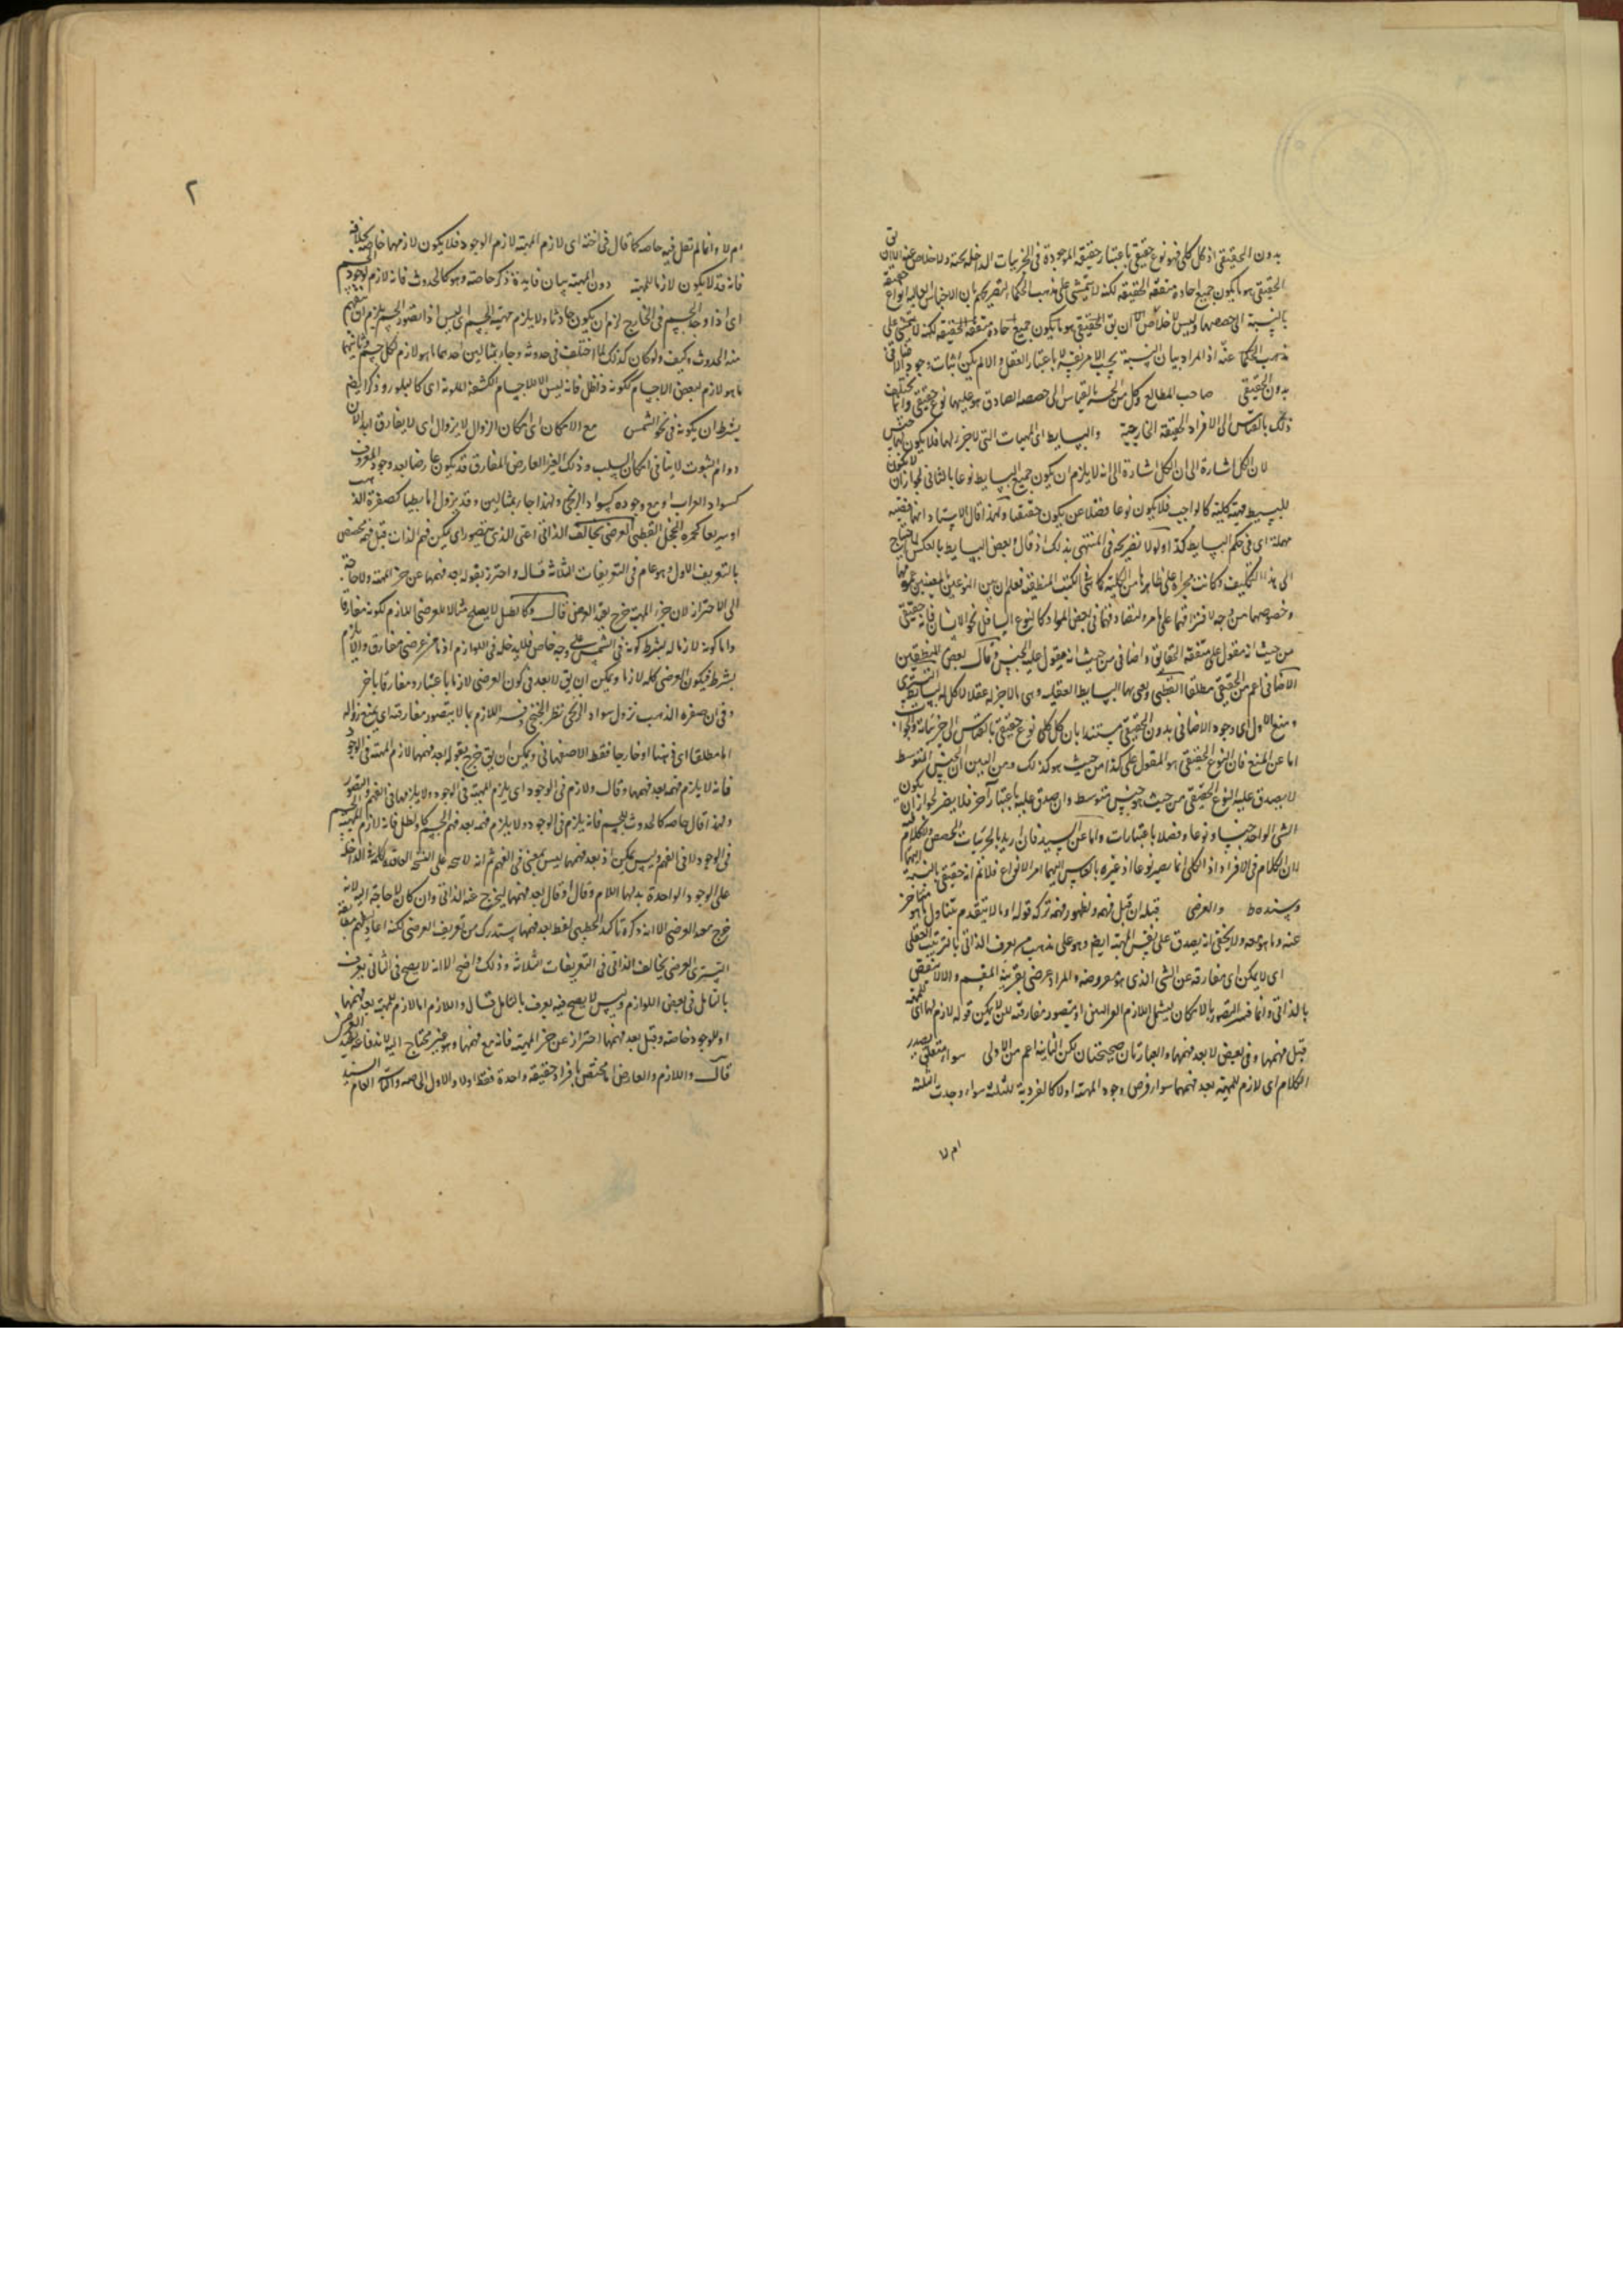 بدون الحقيقي اذ كل كلي فهو نوع حقيقي باعتبار حقيقة الموجودة في الجزئيات الداخلة تحته ولا خلاص عنه الا ان يق
الحقيقي هو ما يكون جميع احاده متفقة الحقيقة لكنه لا يتمشى على مذهب الحكماء بان الاجناس العالية انواع حقيقة
بالنسبة الى حصصها وليس لا خلاص الا ان يق الحقيقي هو ما يكون جميع احاده متفقة الحقيقة لكنه لا يتمشى على
مذهب الحكما عنه اذ المراد بيان النسبة بحسب الامر لا باعتبار العقل والا لم يكن اثبات وجود الاضافي
بدون الحقيقي صاحب المطالع وكل من بالقياس الى حصصه الصادق هو عليها نوع حقيقي وانما يختلف
ذلك بالقياس الى الافراد الحقيقة الخارجية والبسايط اى المهيات التي لا جزء لها فلا يكون لها جنس
لان الكل اشارة الى ان الكل اشارة الى انه لا يلزم ان يكون جميع البسايط نوعا بالثاني لجواز ان لا يكون
للبسيط مهية كلية كالواجب فلا يكون نوعا فضلا عن يكون حقيقيا ولهذا قال الاستاد انها قضية
مهملة اى في حكم البسايط كذا ولولا تصريحه في المنتهى بذلك اذ قال وبعض البسايط بالعكس لا حتاج
الى هذا التكليف وكانت مجراة على ظاهرها من الكلية كما في الكتب المنطقية فعلم ان بين النوعين المعنيين عموما
وخصوصا من وجه لافتراقهما على ما مر ولتصادقهما في بعض المواد كالنوع السافل نحو الانسان فانه حقيقي
من حيث انه مقول على متفقة الحقايق واضافي من حيث انه مقول عليه الجنس وقال بعض المنطقيين
الاضافي اعم من الحقيقي مطلقا القطبي ويعني بها البسايط العقلية وهي ما لا جزء له عقلا لا كل ما له بسايط التستري
ومنع الاول اى وجود الاضافي بدون الحقيقي مستندا بان كل كلي نوع حقيقي بالقياس الى جزئياته والجواب
اما عن المنع فان النوع الحقيقي هو المقول على كذا من حيث هو كذلك ومن البين ان الجنس المتوسط
لا يصدق عليه النوع الحقيقي من حيث هو جنس متوسط وان صدق عليه باعتبار آخر فلا يضر لجواز ان يكون
الشي الواحد جنسا ونوعا وفصلا باعتبارات واما عن السند فان اريد بالجزئيات الحصص فلا كلام فيه
لان الكلام في الافراد اذ الكلي انما يصير نوعا او غيره بالقياس اليهما لا الانواع فلا نم انه حقيقي بالنسبة اليها
وسنده والعرضي قيل ان قبل فهمه ولظهور فهمه تركه قوله او ما لا يتقدم يتناول ما هو متاخر
عنه وما هو معه ولا يخفى انه يصدق على نفس المهية ايض وهو على مذهب من يعرف الذاتي بالترتيب العقلي
اى لا يمكن اى مفارقه عن الشي الذي هو معروضه والمراد عرضي بقرينة المقسم والا لانتقض
بالذاتي وانما فسر التصور بالامكان ليشمل اللازم الغير البين اذ يتصور مفارقته لكن لا يمكن قوله لازم لها اى للمهية
قبل فهمها وفي بعض لا بعد فهمها والعبارتان صحيحتان لكن الثانية اعم من الاولى سواء متعلق بصدر
الكلام اى لازم للمهية بعد فهمها سواء فرض وجود المهية اولا كالفردية للثلثة سواء وجدت الثلثة
ام لا
٢
ام لا وانما لم تقل فيه خاصه كما قال في اخته اى لازم المهية لازم الوجود فلا يكون لازمها خاصة بخلافه
فانه قد لا يكون لازما للمهية دون المهية بيان فايدة ذكر خاصة وهو كالحدوث فانه لازم لوجود الجسم
اى اذا وجد الجسم في الخارج لزم ان يكون حادثا ولا يلزم مهية الجسم اى ليس اذا تصور الجسم يلزم ان يفهم
منه الحدوث وكيف ولو كان كذلك لما اختلف في حدوثه وجاء بمثالين احدهما ما هو لازم لكل جسم وثانيهما
ما هو لازم لبعض الاجسام ككونه ذا ظل فانه ليس الا للاجسام الكثيفة اى كالبلور وذكر ايض
بشرط ان يكون في نحو الشمس مع الامكان اى امكان الزوال لا يزول اى لا يفارق ابدا لان
دوام الثبوت لا ينافي امكان السلب وذلك الغير العارض المفارق قد يكون عارضا بعد وجود المعروض
كسواد الغراب او مع وجوده كسواد الزنجي ولهذا جاء بمثالين وقد يزول اما بطيئا كصفرة الذهب
او سريعا كحمرة الخجل القطبي العرضي يخالف الذاتي اعني الذي يتصور اى يمكن فهم الذات قبل فهمه مختص
بالتعريف الاول وهو عام في التعريفات الثلاثة قال واحترز بقوله بعد فهمها عن جزء المهية ولا حاجة
الى الاحتراز لان جزء المهية خرج بقيد العرضي قال وكالظل لا يصلح مثالا للعرضي اللازم لكونه مفارقا
واما كونه لازما له بشرط كونه في الشمس على وجه خاص فلا يدخله في اللوازم اذ ما من عرضي مفارق والا يلزم
بشرط فيكون العرضي كله لازما ويمكن ان يق لا بعد في كون العرضي لازما باعتبار ومفارقا باخر
وفي ان صفرة الذهب تزول سواد الزنجي نظر الخنجي فسر اللازم بما لا يتصور مفارقته اى يمنع زواله
اما مطلقا اى ذهنا او خارجا فقط الاصفهاني ويمكن ان يق خرج بقوله بعد فهمها لازم المهية في الوجود
فانه لا يلزم فهمه بعد فهمها وقال ولازم في الوجود اى يلزم المهية في الوجود ولا يلزمها في الفهم والتصور
ولهذا قال خاصة كالحدوث للجسم فانه يلزم في الوجود ولا يلزم فهمه بعد فهم الجسم وكالظل فانه لازم للمهية
في الوجود لا في الفهم وليس يمكن اذ بعد فهمها ليس بمعنى في الفهم ثم انه على النسخة الفاقدة لكلمة في الداخلة
على الوجود الواجدة بدلها اللام وقال وقال بعد فهمها ليخرج عنه الذاتي وان كان لا حاجة اليه لانه
خرج بقيد العرضي الا انه ذكره تاكيدا الخطيبي لفظ بعد فهمها يستدرك من تعريف العرضي لكنه
التستري العرضي يخالف الذاتي في التعريفات الثلاثة وذلك واضح الا انه لا يصح في الثاني يعرف
بالتامل في بعض اللوازم وليس لا يصح فيه يعرف بالتامل قال واللازم اما لازم للمهية بعد فهمها
او للوجود خاصة وقيل بعد فهمها احتراز عن جزء المهية فانه مع فهمها وهو غير محتاج اليه لاندفاعه بقيد العرضي
قال واللازم والعارض اما مختص بافراد حقيقة واحدة فقط اولا والاول الخاصة والثاني العام السيد